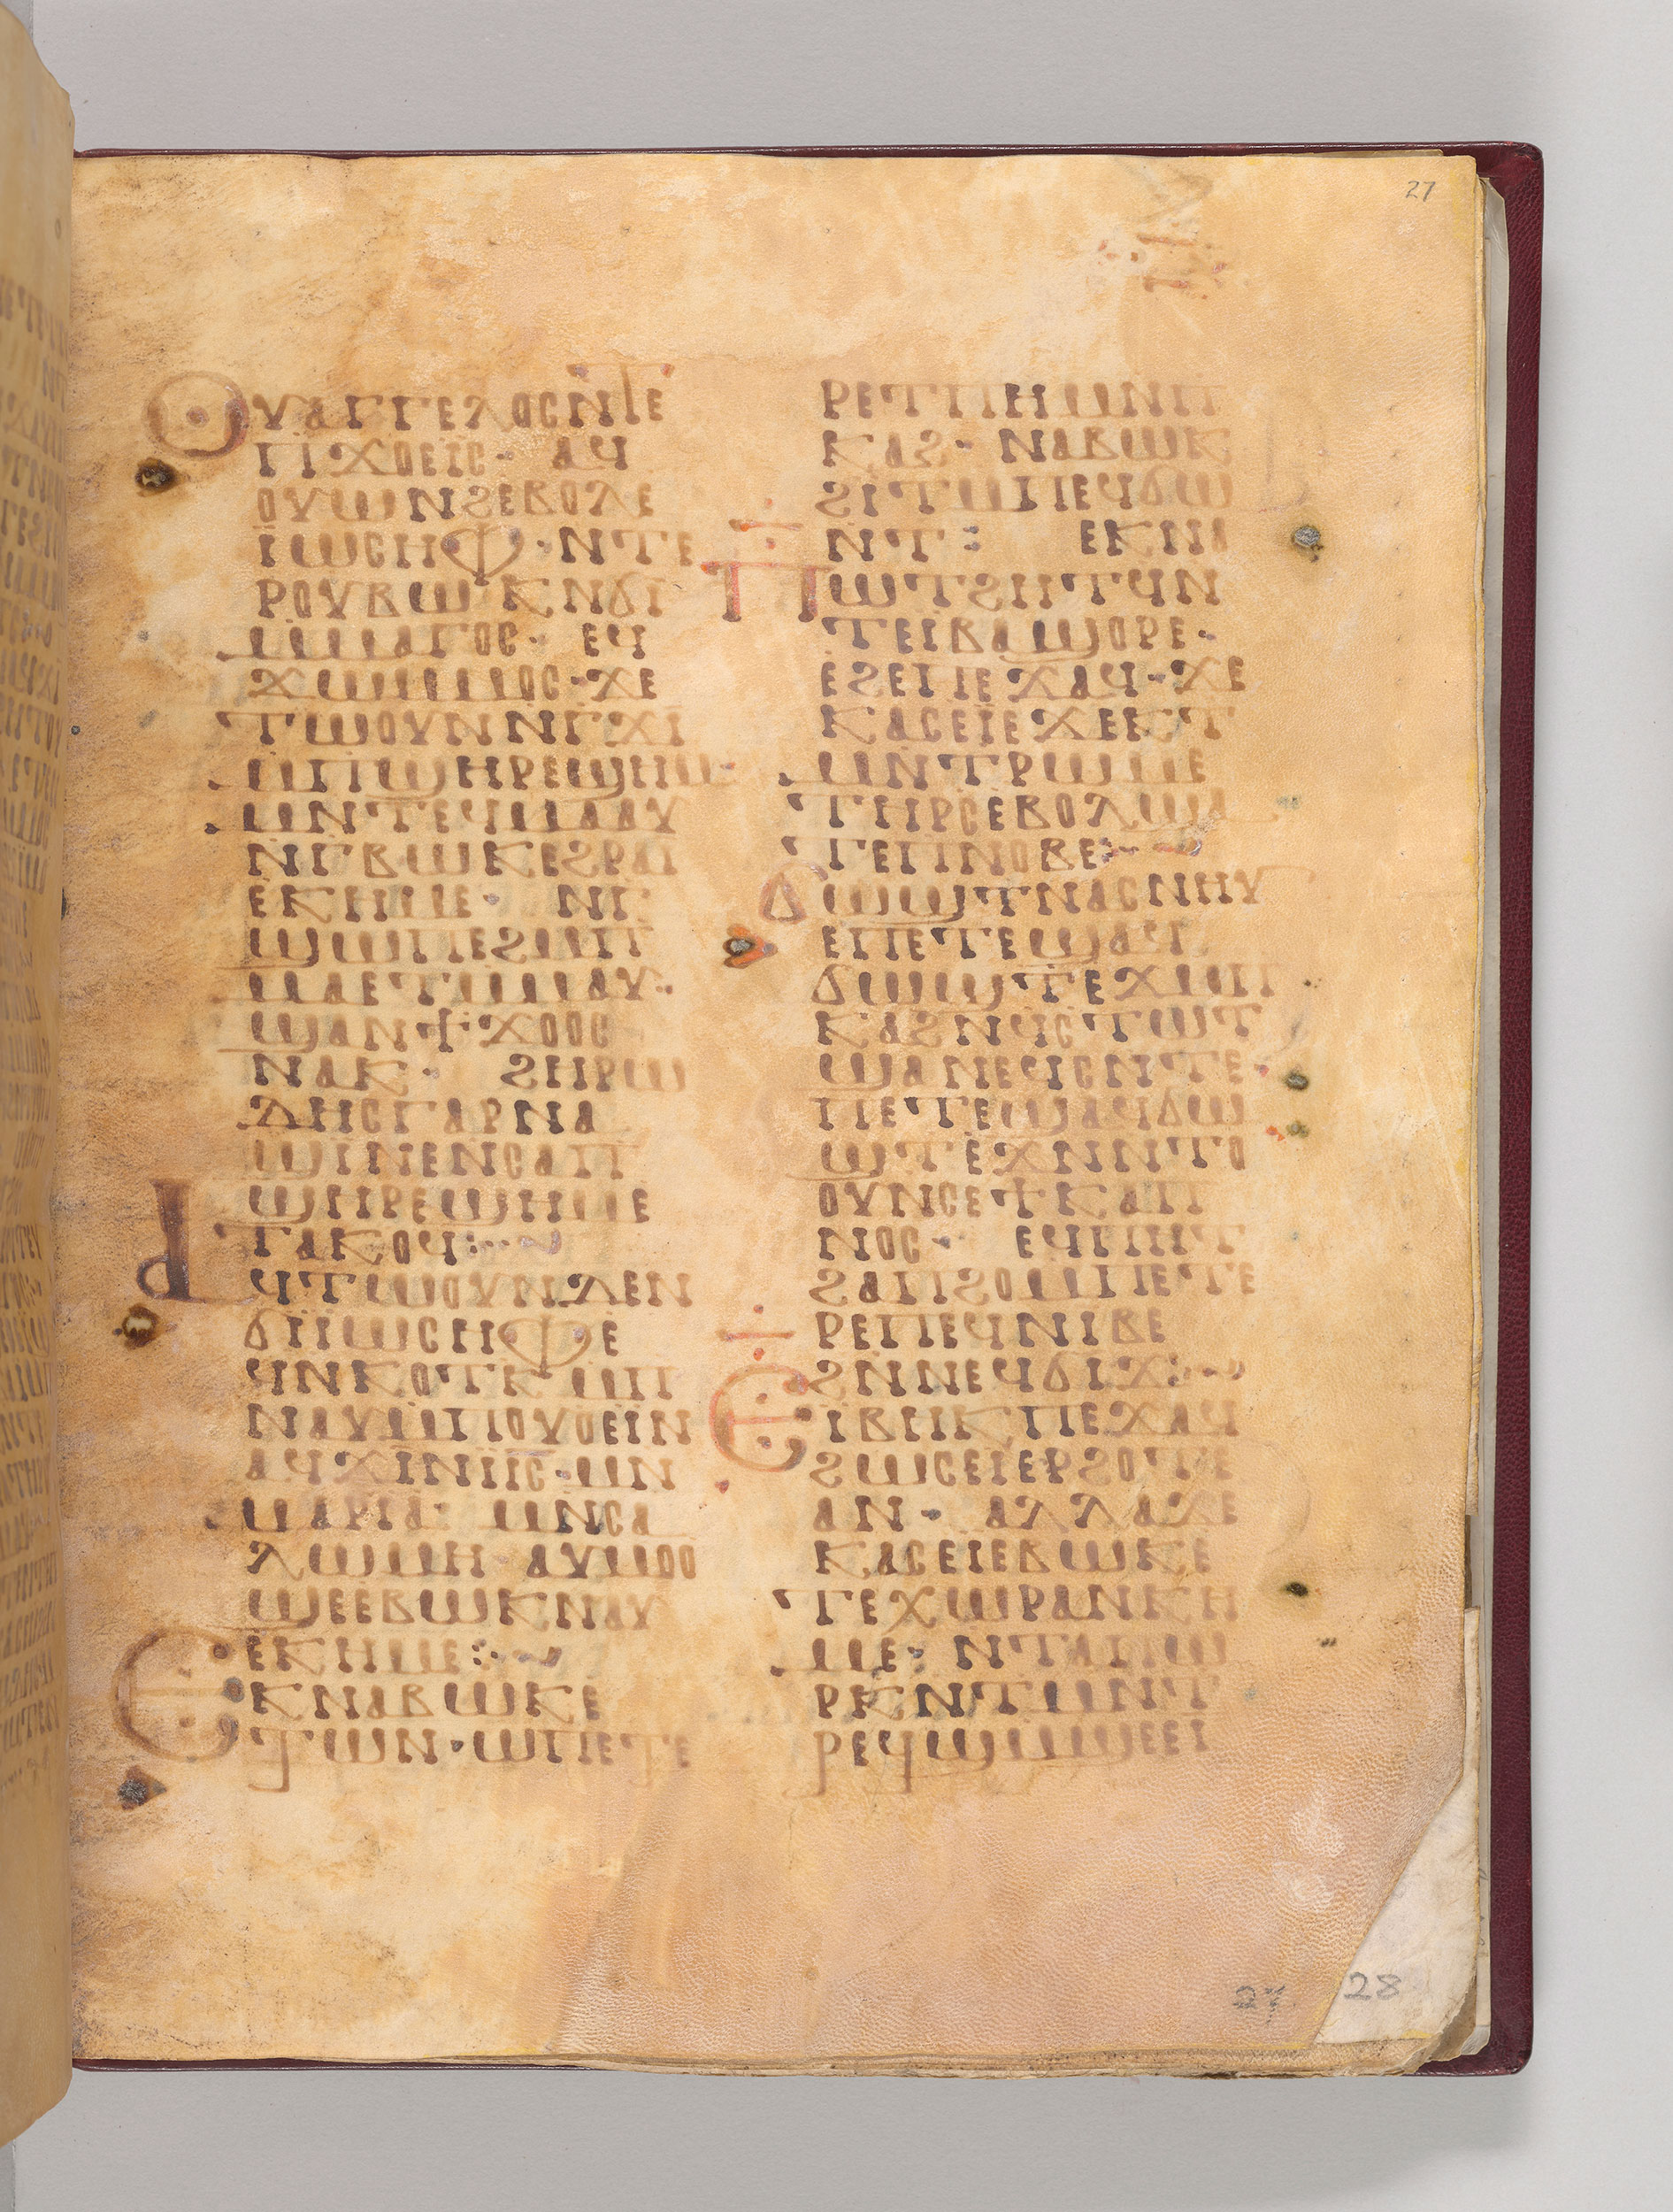 27
ⲞⲨⲀⲄⲄⲉⲗⲟⲥⲛⲧⲉ
ⲡϫⲟⲉⲓⲥ· ⲁϥ
ⲟⲩⲱⲛϩⲉⲃⲟⲗⲉ
ⲓⲱⲥⲏⲫ·ⲛⲧⲉ
ⲣⲟⲩⲃⲱⲕⲛϭⲓ
ⲙⲙⲁⲅⲟⲥ· ⲉϥ
ϫⲱⲙⲙⲟⲥ·ϫⲉ
ⲧⲱⲟⲩⲛⲛⲅϫⲓ
ⲙⲡϣⲏⲣⲉϣⲏⲙ
ⲙⲛⲧⲉϥⲙⲁⲁⲩ
ⲛⲅⲃⲱⲕⲉϩⲣⲁⲓ
ⲉⲕⲏⲙⲉ· ⲛⲅ
ϣⲱⲡⲉϩⲙⲡ
ⲙⲁⲉⲧⲙⲙⲁⲩ:
ϣⲁⲛϯϫⲟⲟⲥ
ⲛⲁⲕ· ϩⲏⲣⲱ
ⲇⲏⲥⲅⲁⲣⲛⲁ
ϣⲓⲛⲉⲛⲥⲁⲡ
ϣⲏⲣⲉϣⲏⲙⲉ
ⲧⲁⲕⲟϥ:
ⲁϥⲧⲱⲟⲩⲛⲇⲉⲛ
ϭⲓⲓⲱⲥⲏⲫⲉ
ϥⲛⲕⲟⲧⲕ ⲙⲡ
ⲛⲁⲩⲙⲡⲟⲩⲟⲉⲓⲛ
ⲁϥϫⲓⲛⲓⲥ·ⲙⲛ
ⲙⲁⲣⲓⲁ· ⲙⲛⲥⲁ
ⲗⲱⲙⲏ ⲁⲩⲙⲟⲟ
ϣⲉⲉⲃⲱⲕⲛⲁⲩ
ⲉⲕⲏⲙⲉ:
ⲉⲕⲛⲁⲃⲱⲕⲉ
ⲧⲱⲛ·ⲱⲡⲉⲧⲉ
ⲣⲉⲧⲡⲉⲙⲛⲡ
ⲕⲁϩ· ⲛⲁⲃⲱⲕ
ϩⲓⲧⲙⲡⲉϥϭⲱ
ⲛⲧ: ⲉⲕⲛⲁ
ⲡⲱⲧϩⲏⲧϥⲛ
ⲧⲉⲓⲃⲁϣⲟⲣⲉ·
ⲉϩⲉⲡⲉϫⲁϥ·ϫⲉ
ⲕⲁⲥⲉⲓⲉϫⲉⲕⲧ
ⲙⲛⲧⲣⲱⲙⲉ
ⲧⲏⲣⲥⲉⲃⲟⲗϣⲁ
ⲧⲉⲡⲛⲟⲃⲉ:
ϭⲱϣⲧⲛⲁⲥⲛⲏⲩ
ⲉⲡⲉⲧⲉϣⲁϥ
ϭⲱϣⲧⲉϫⲙⲡ
ⲕⲁϩⲛϥⲥⲧⲱⲧ
ϣⲁⲛⲉϥⲥⲛⲧⲉ·
ⲡⲉⲧⲉϣⲁϥϭⲱ
ϣⲧⲉϫⲛⲛⲧⲟ
ⲟⲩⲛⲥⲉϯⲕⲁⲡ
ⲛⲟⲥ· ⲉϥⲡⲏⲧ
ϩⲁⲡϩⲟⲙⲡⲉⲧⲉ
ⲣⲉⲡⲉϥⲛⲓⲃⲉ
ϩⲛⲛⲉϥϭⲓϫ:
ⲉⲓⲃⲏⲕⲡⲉϫⲁϥ
ϩⲱⲥⲉⲓⲉⲣϩⲟⲧⲉ
ⲁⲛ· ⲁⲗⲗⲁϫⲉ
ⲕⲁⲥⲉⲓⲉⲃⲱⲕⲉ
ⲧⲉⲭⲱⲣⲁⲛⲕⲏ
ⲙⲉ: ⲛⲧⲁⲡⲱ
ⲣⲕⲛⲧⲙⲛⲧ
ⲣⲉϥϣⲙϣⲉⲉⲓ
28